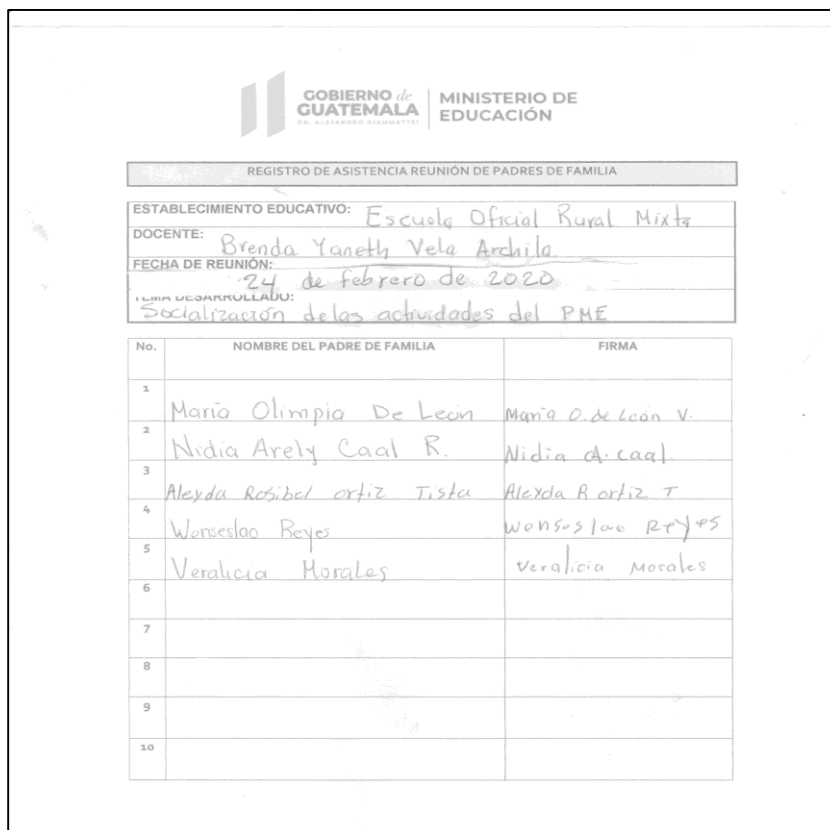 GOBIERNO de
GUATEMALA
DR. ALEJANDRO GIAMMATTEI
MINISTERIO DE
EDUCACIÓN
REGISTRO DE ASISTENCIA REUNIÓN DE PADRES DE FAMILIA
ESTABLECIMIENTO EDUCATIVO: Escuela Oficial Rural Mixta
DOCENTE: Brenda Yaneth Vela Archila
FECHA DE REUNIÓN: 24 de febrero de 2020
TEMA DESARROLLADO:
Socialización de las actividades del PME
No. NOMBRE DEL PADRE DE FAMILIA FIRMA
1 María Olimpia De León María O. de León V.
2 Nidia Arely Caal R. Nidia A. Caal.
3 Aleyda Rosibel ortiz Tista Aleyda R ortiz T
4 Wenseslao Reyes Wenseslao Reyes
5 Veralicia Morales Veralicia Morales
6
7
8
9
10